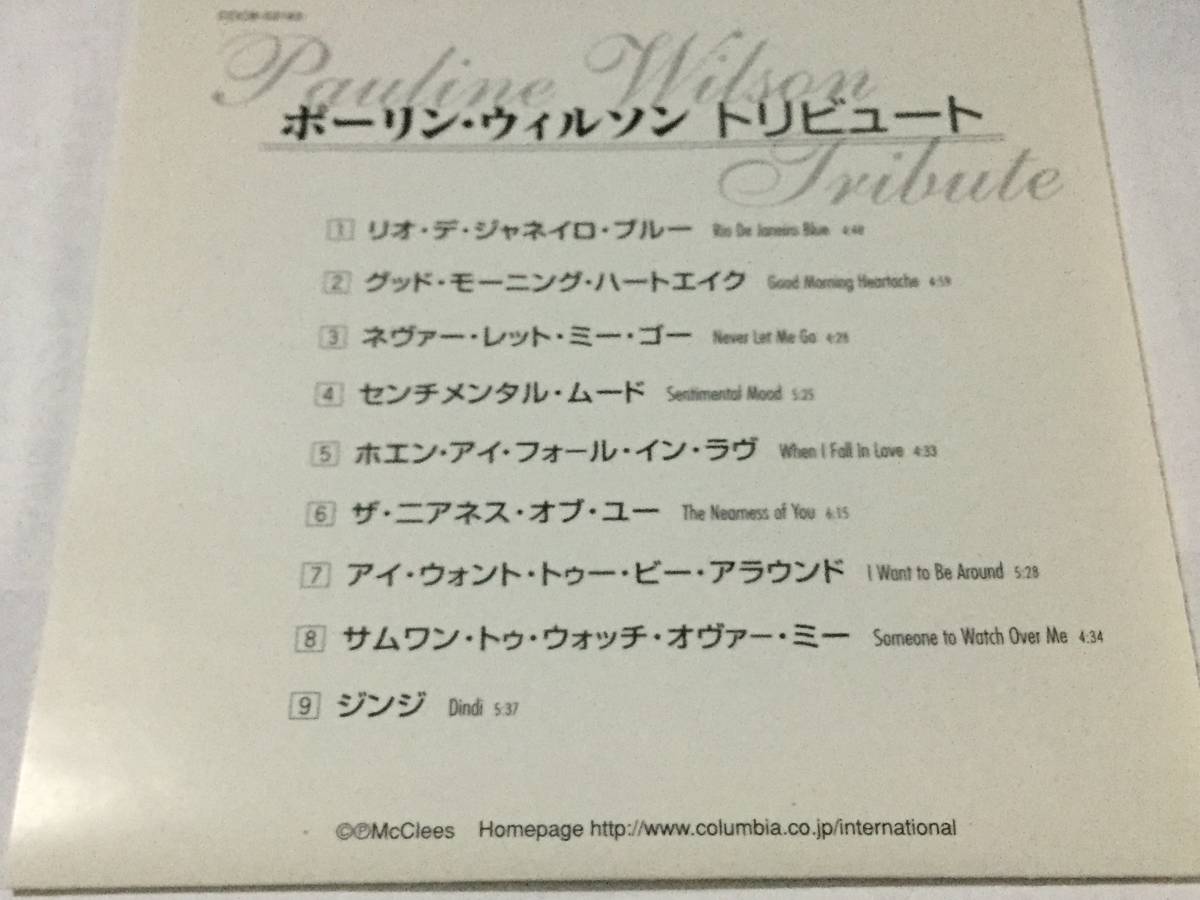 Pauline Wilson
ポーリン・ウィルソン トリビュート
Tribute
1 リオ・デ・ジャネイロ・ブルー Rio De Janeiro Blue 4:48
2 グッド・モーニング・ハートエイク Good Morning Heartache 4:59
3 ネヴァー・レット・ミー・ゴー Never Let Me Go 4:28
4 センチメンタル・ムード Sentimental Mood 5:25
5 ホエン・アイ・フォール・イン・ラヴ When I Fall In Love 4:33
6 ザ・ニアネス・オブ・ユー The Nearness of You 6:15
7 アイ・ウォント・トゥー・ビー・アラウンド I Want to Be Around 5:28
8 サムワン・トゥ・ウォッチ・オヴァー・ミー Someone to Watch Over Me 4:34
9 ジンジ Dindi 5:37
©℗McClees Homepage http://www.columbia.co.jp/international